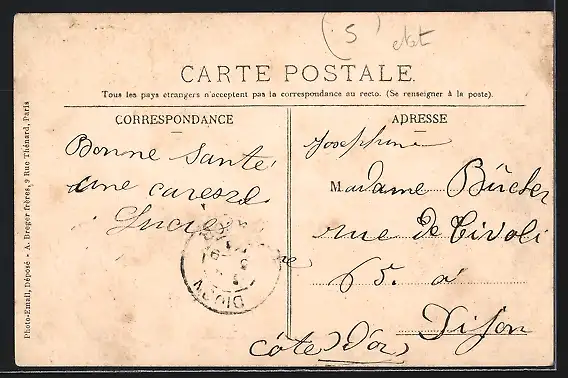 (5) etat
CARTE POSTALE.
Tous les pays étrangers n'acceptent pas la correspondance au recto. (Se renseigner à la poste).
CORRESPONDANCE
Bonne santé
une caresse
Lucie
ADRESSE
Joséphine
Madame Bücher
rue de Tivoli
65. à
Dijon
(Côte d'or)
DIJON
Photo-Email, Déposé - A. Breger frères, 9 Rue Thénard, Paris